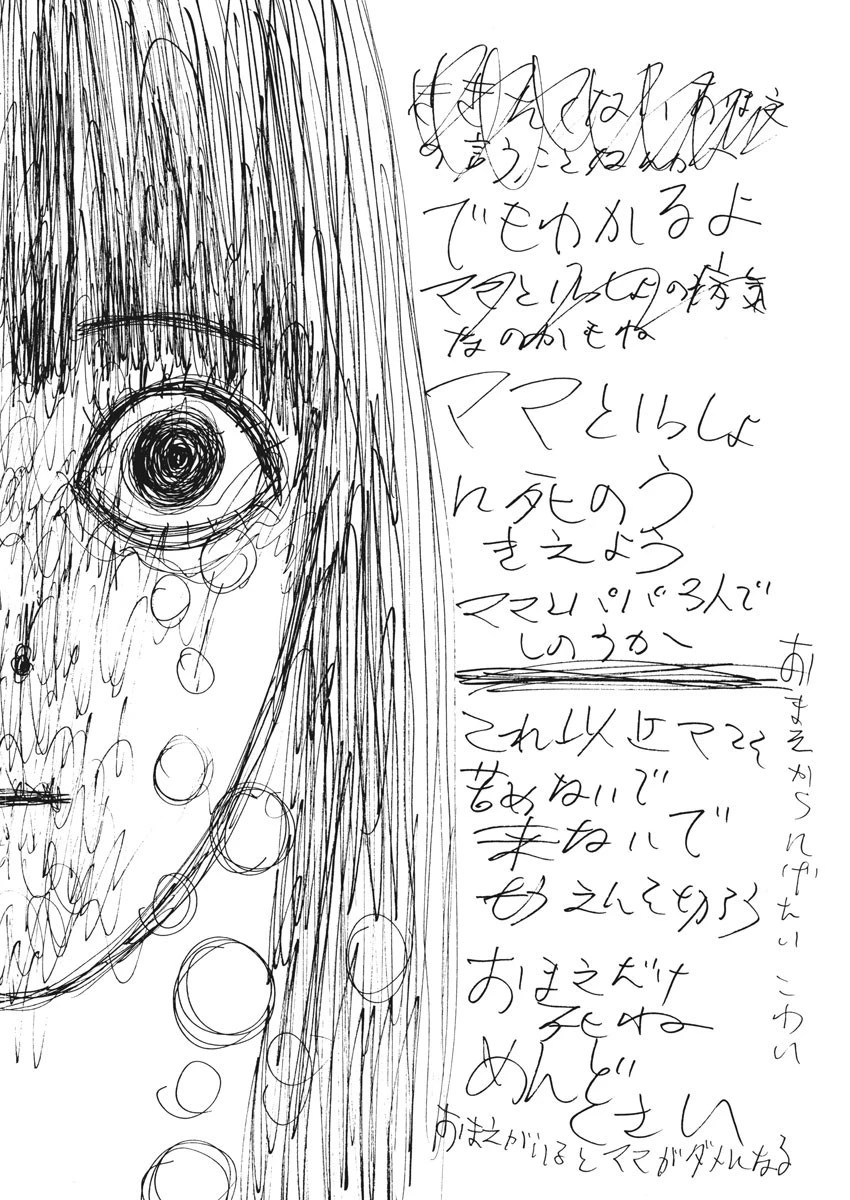 の言うことね
でもわかるよ
ママといっしょの病気
なのかもね
ママといっしょ
に死のう
きえよう
ママとパパ3人で
しのうか
これ以上ママを
苦めないで
来ないで
もうえんを切ろう
おまえだけ
死ね
めんど
くさい
おまえがいるとママがダメになる
おまえからにげたい こわい